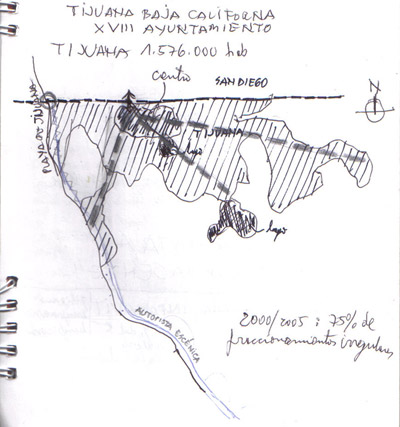 TIJUANA BAJA CALIFORNA
XVIII AYUNTAMIENTO
TIJUANA 1.576.000 hab
centro
SAN DIEGO
N
PLAYA DE TIJUANA
TIJUANA
lago
AUTOPISTA ESCÉNICA
2000/2005 : 75% de
fraccionamientos irregulares